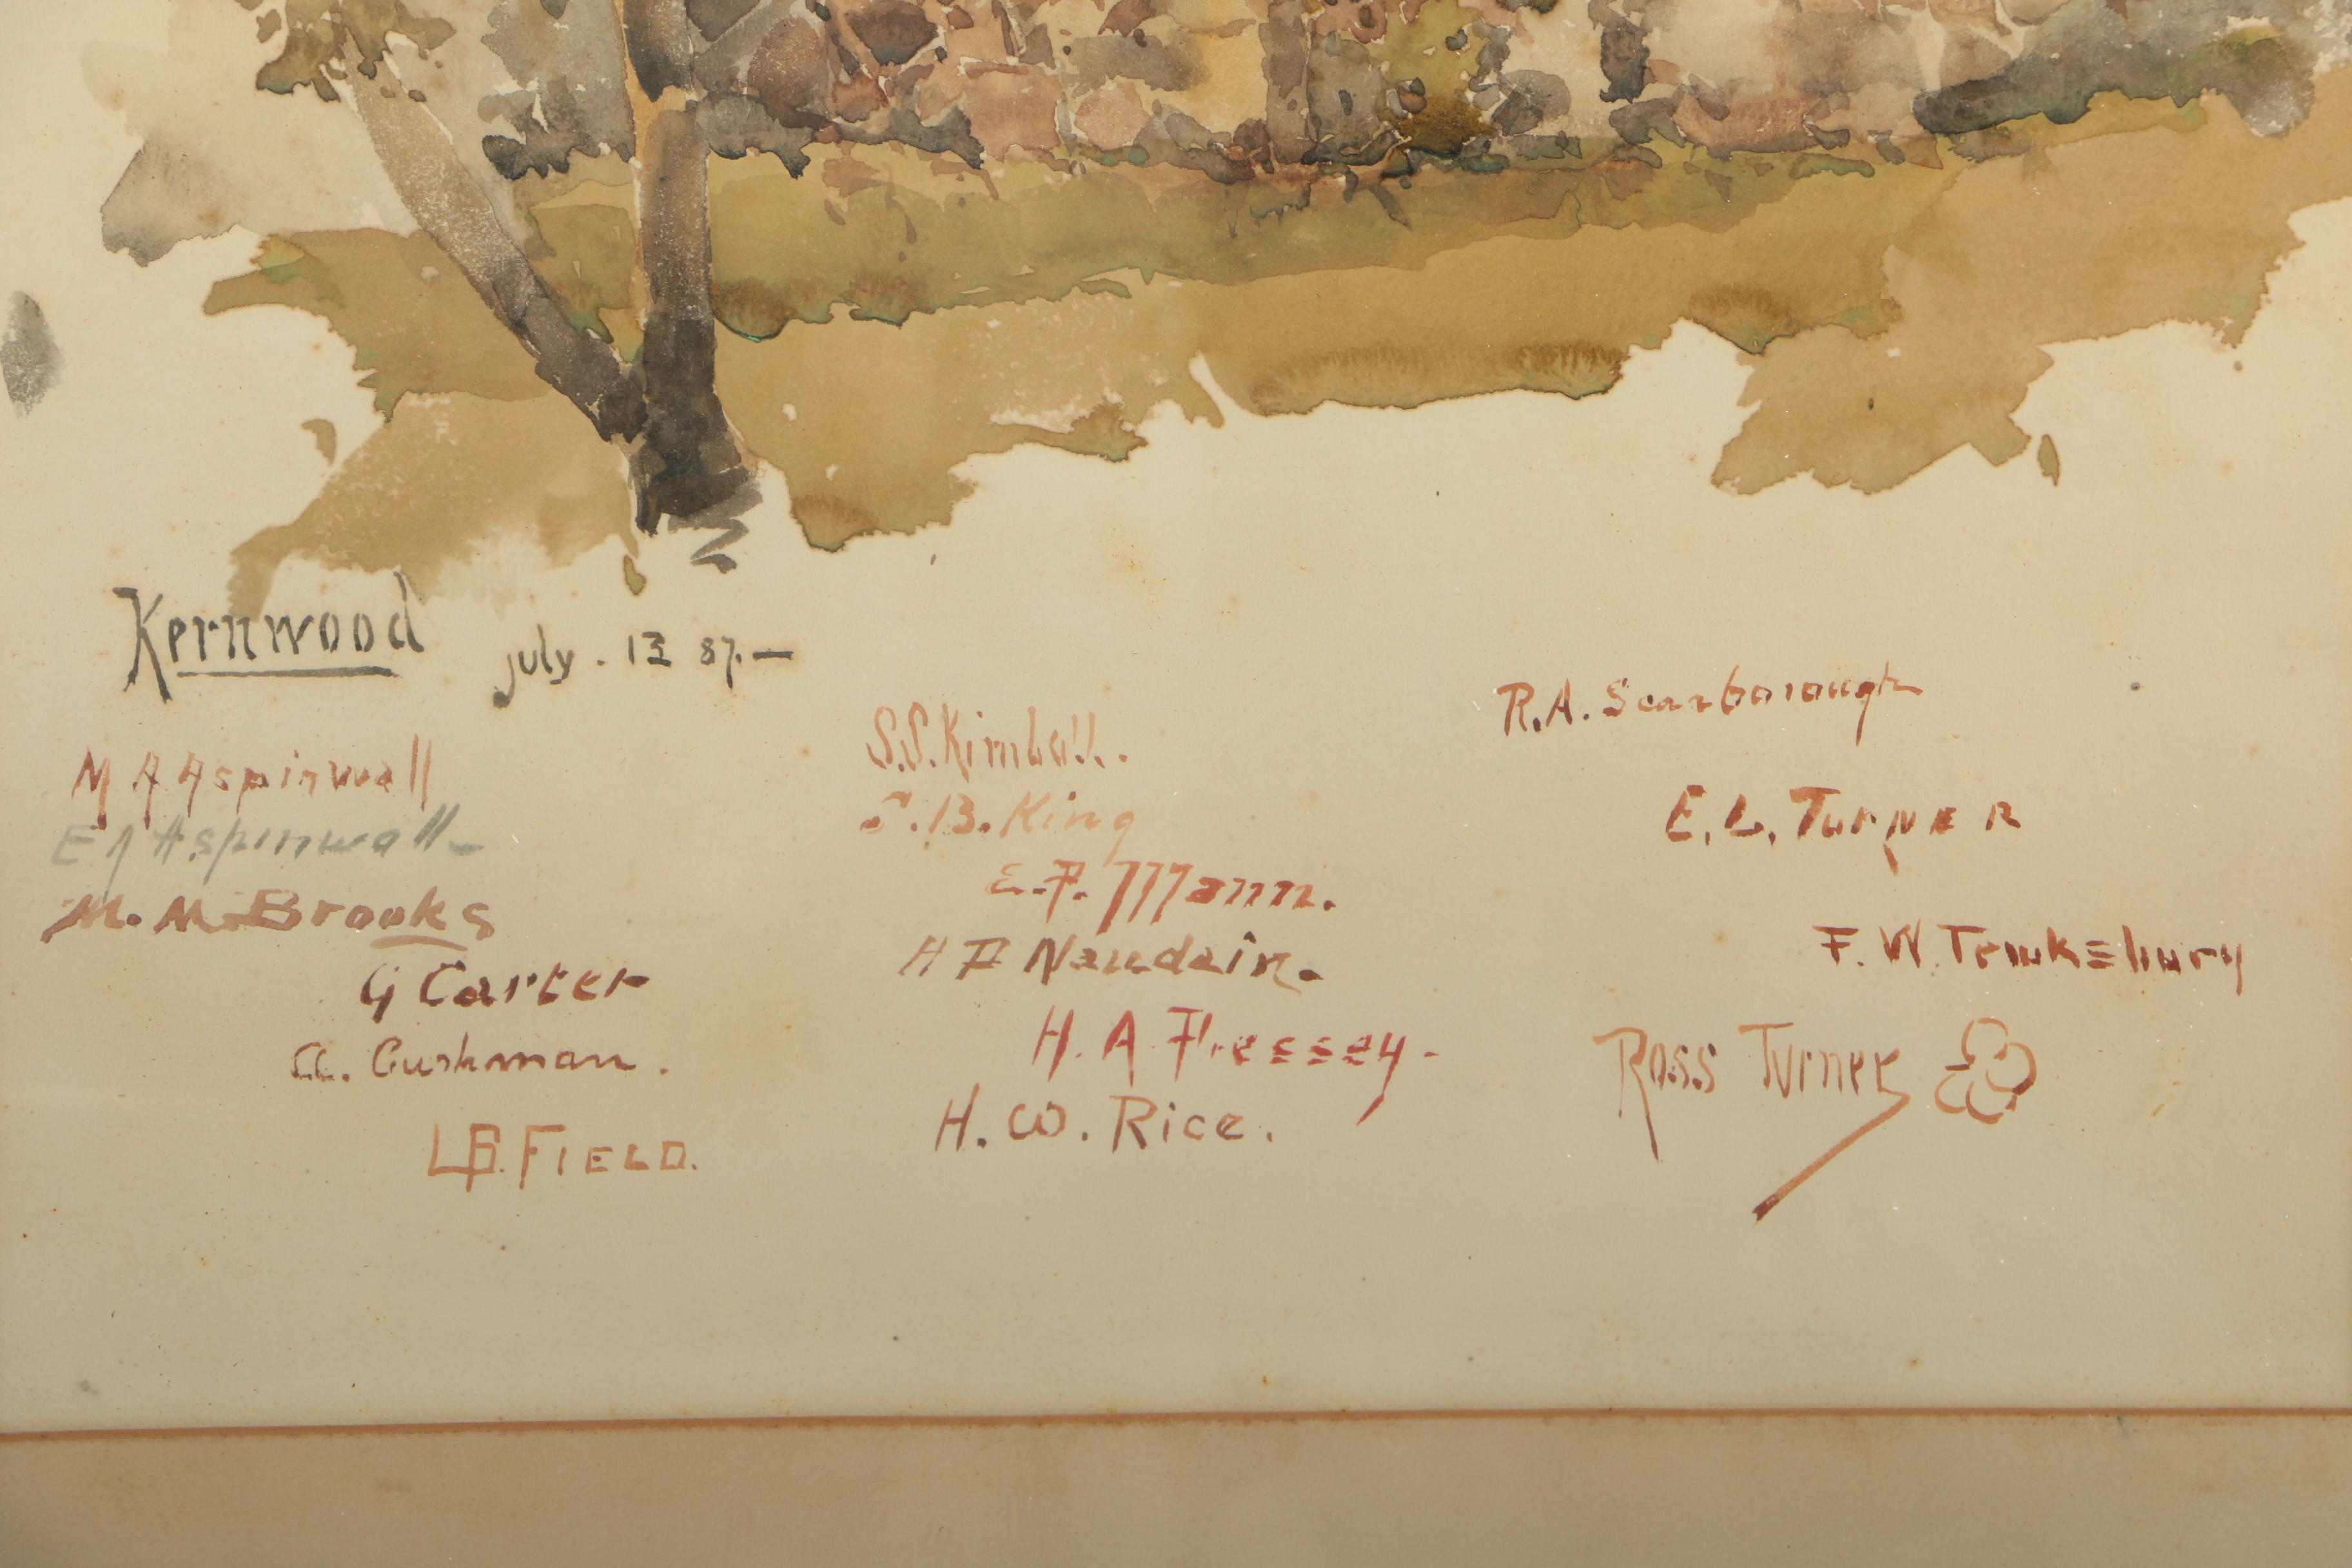 Kernwood
July . 13 87.—
M A Aspinwall
E J Aspinwall
M. M. Brooks
G Carter
A. Cushman.
LB. FIELD.
S.S. Kimball.
B. King
E. P. Mann.
H P Naudain.
H. A.
H. W. Rice.
R. A. Scarborough
E. L. TURNER
F. W. Tewksbury
Ross Turner